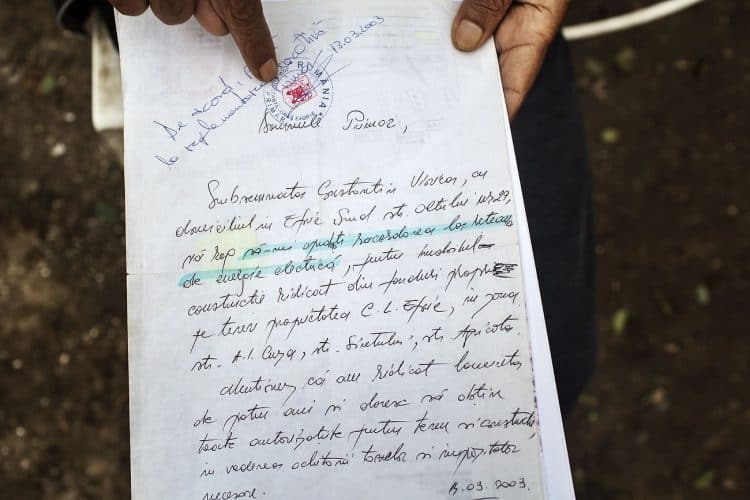 De acord
la reglementarea
13.03.2003
ROMÂNIA
Domnule Primar,
Subsemnatul Constantin Viorica, cu
domiciliul în Eforie Sud str. Oltului nr. 29,
vă rog să-mi aprobați racordarea la rețeaua
de energie electrică, pentru imobilul
construcție ridicat din fonduri proprii
pe teren proprietatea C. L. Eforie, în zona
str. A. I. Cuza, str. Siretului, str. Agricola.
Menționez că am ridicat locuința
de patru ani și doresc să obțin
toate autorizațiile pentru teren și construcții,
în vederea achitării taxelor și impozitelor
necesare.
13.03.2003.